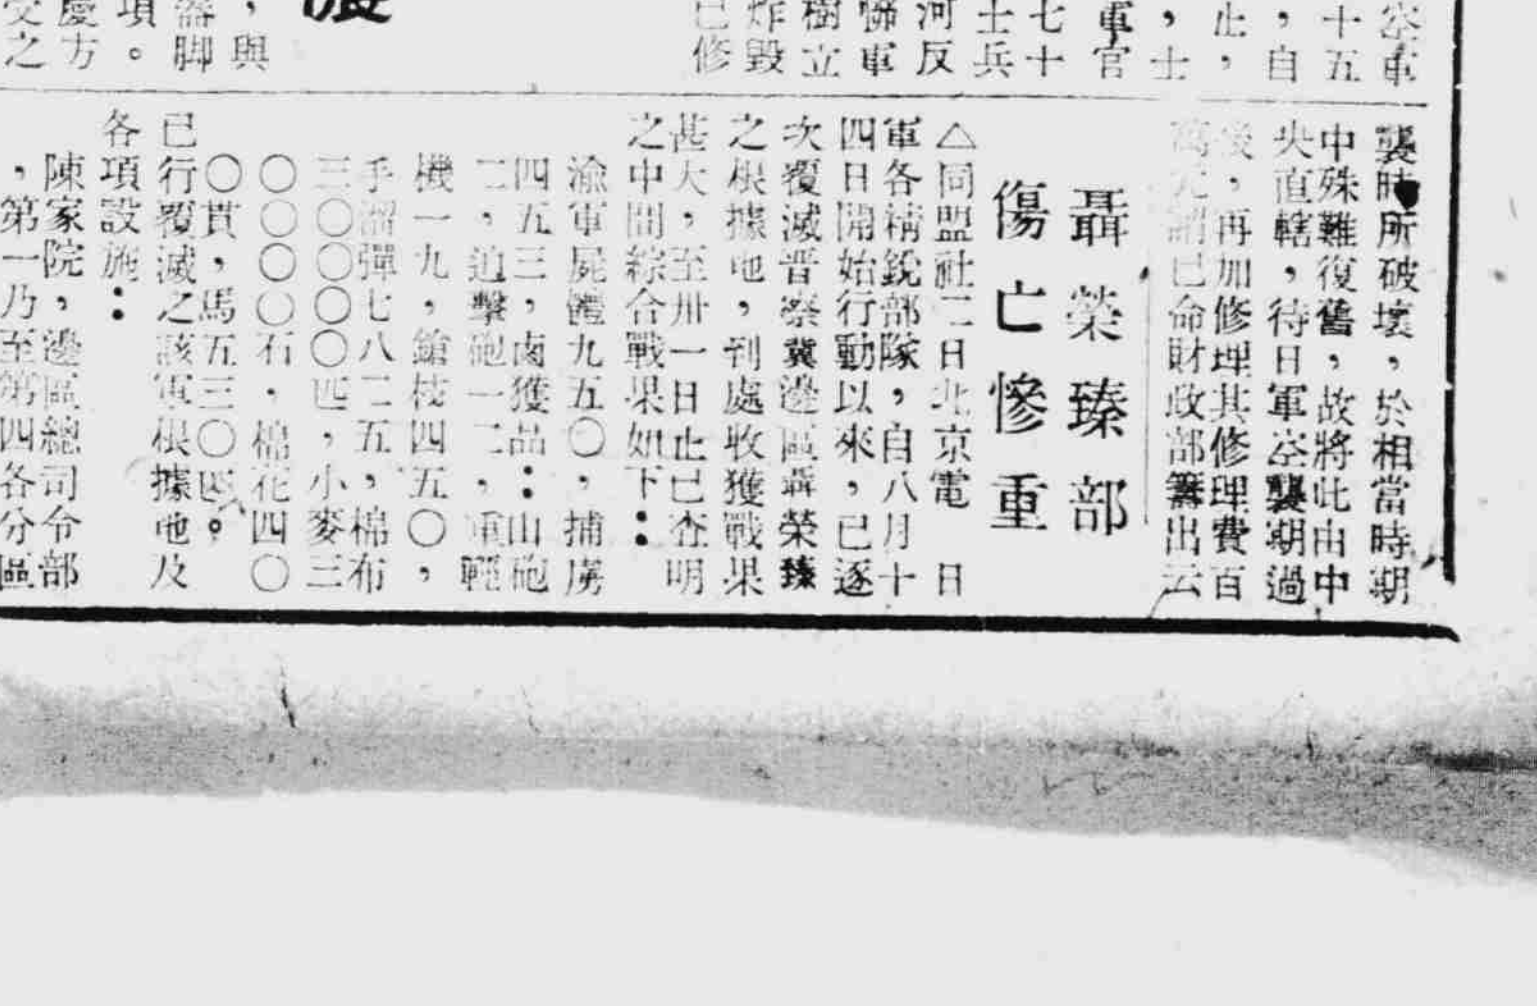 空軍
十五
，自
止，
，士
軍官
七十
士兵
河反
聯軍
樹立
炸毀
已修
，與
器脚
項。
慶方
受之
襲時所破壞，於相當時期
中殊難復舊，故將此由中
央直轄，待日軍空襲期過
後，再加修理其修理費百
萬元謂已命財政部籌出云
聶榮臻部
傷亡慘重
△同盟社二日北京電　日
軍各精銳部隊，自八月十
四日開始行動以來，已逐
次覆滅晋察冀邊區聶榮臻
之根據地，到處收獲戰果
甚大，至卅一日止已查明
之中間綜合戰果如下：
渝軍屍體九五〇，捕虜
四五三，鹵獲品：山砲
二，迫擊砲一二，重輕
機一九，鎗枝四五〇，
手溜彈七八二五，棉布
三〇〇〇〇匹，小麥三
〇〇〇〇石，棉花四〇
〇貫，馬五三〇匹。
已行覆滅之該軍根據地及
各項設施：
陳家院，邊區總司令部
，第一乃至第四各分區